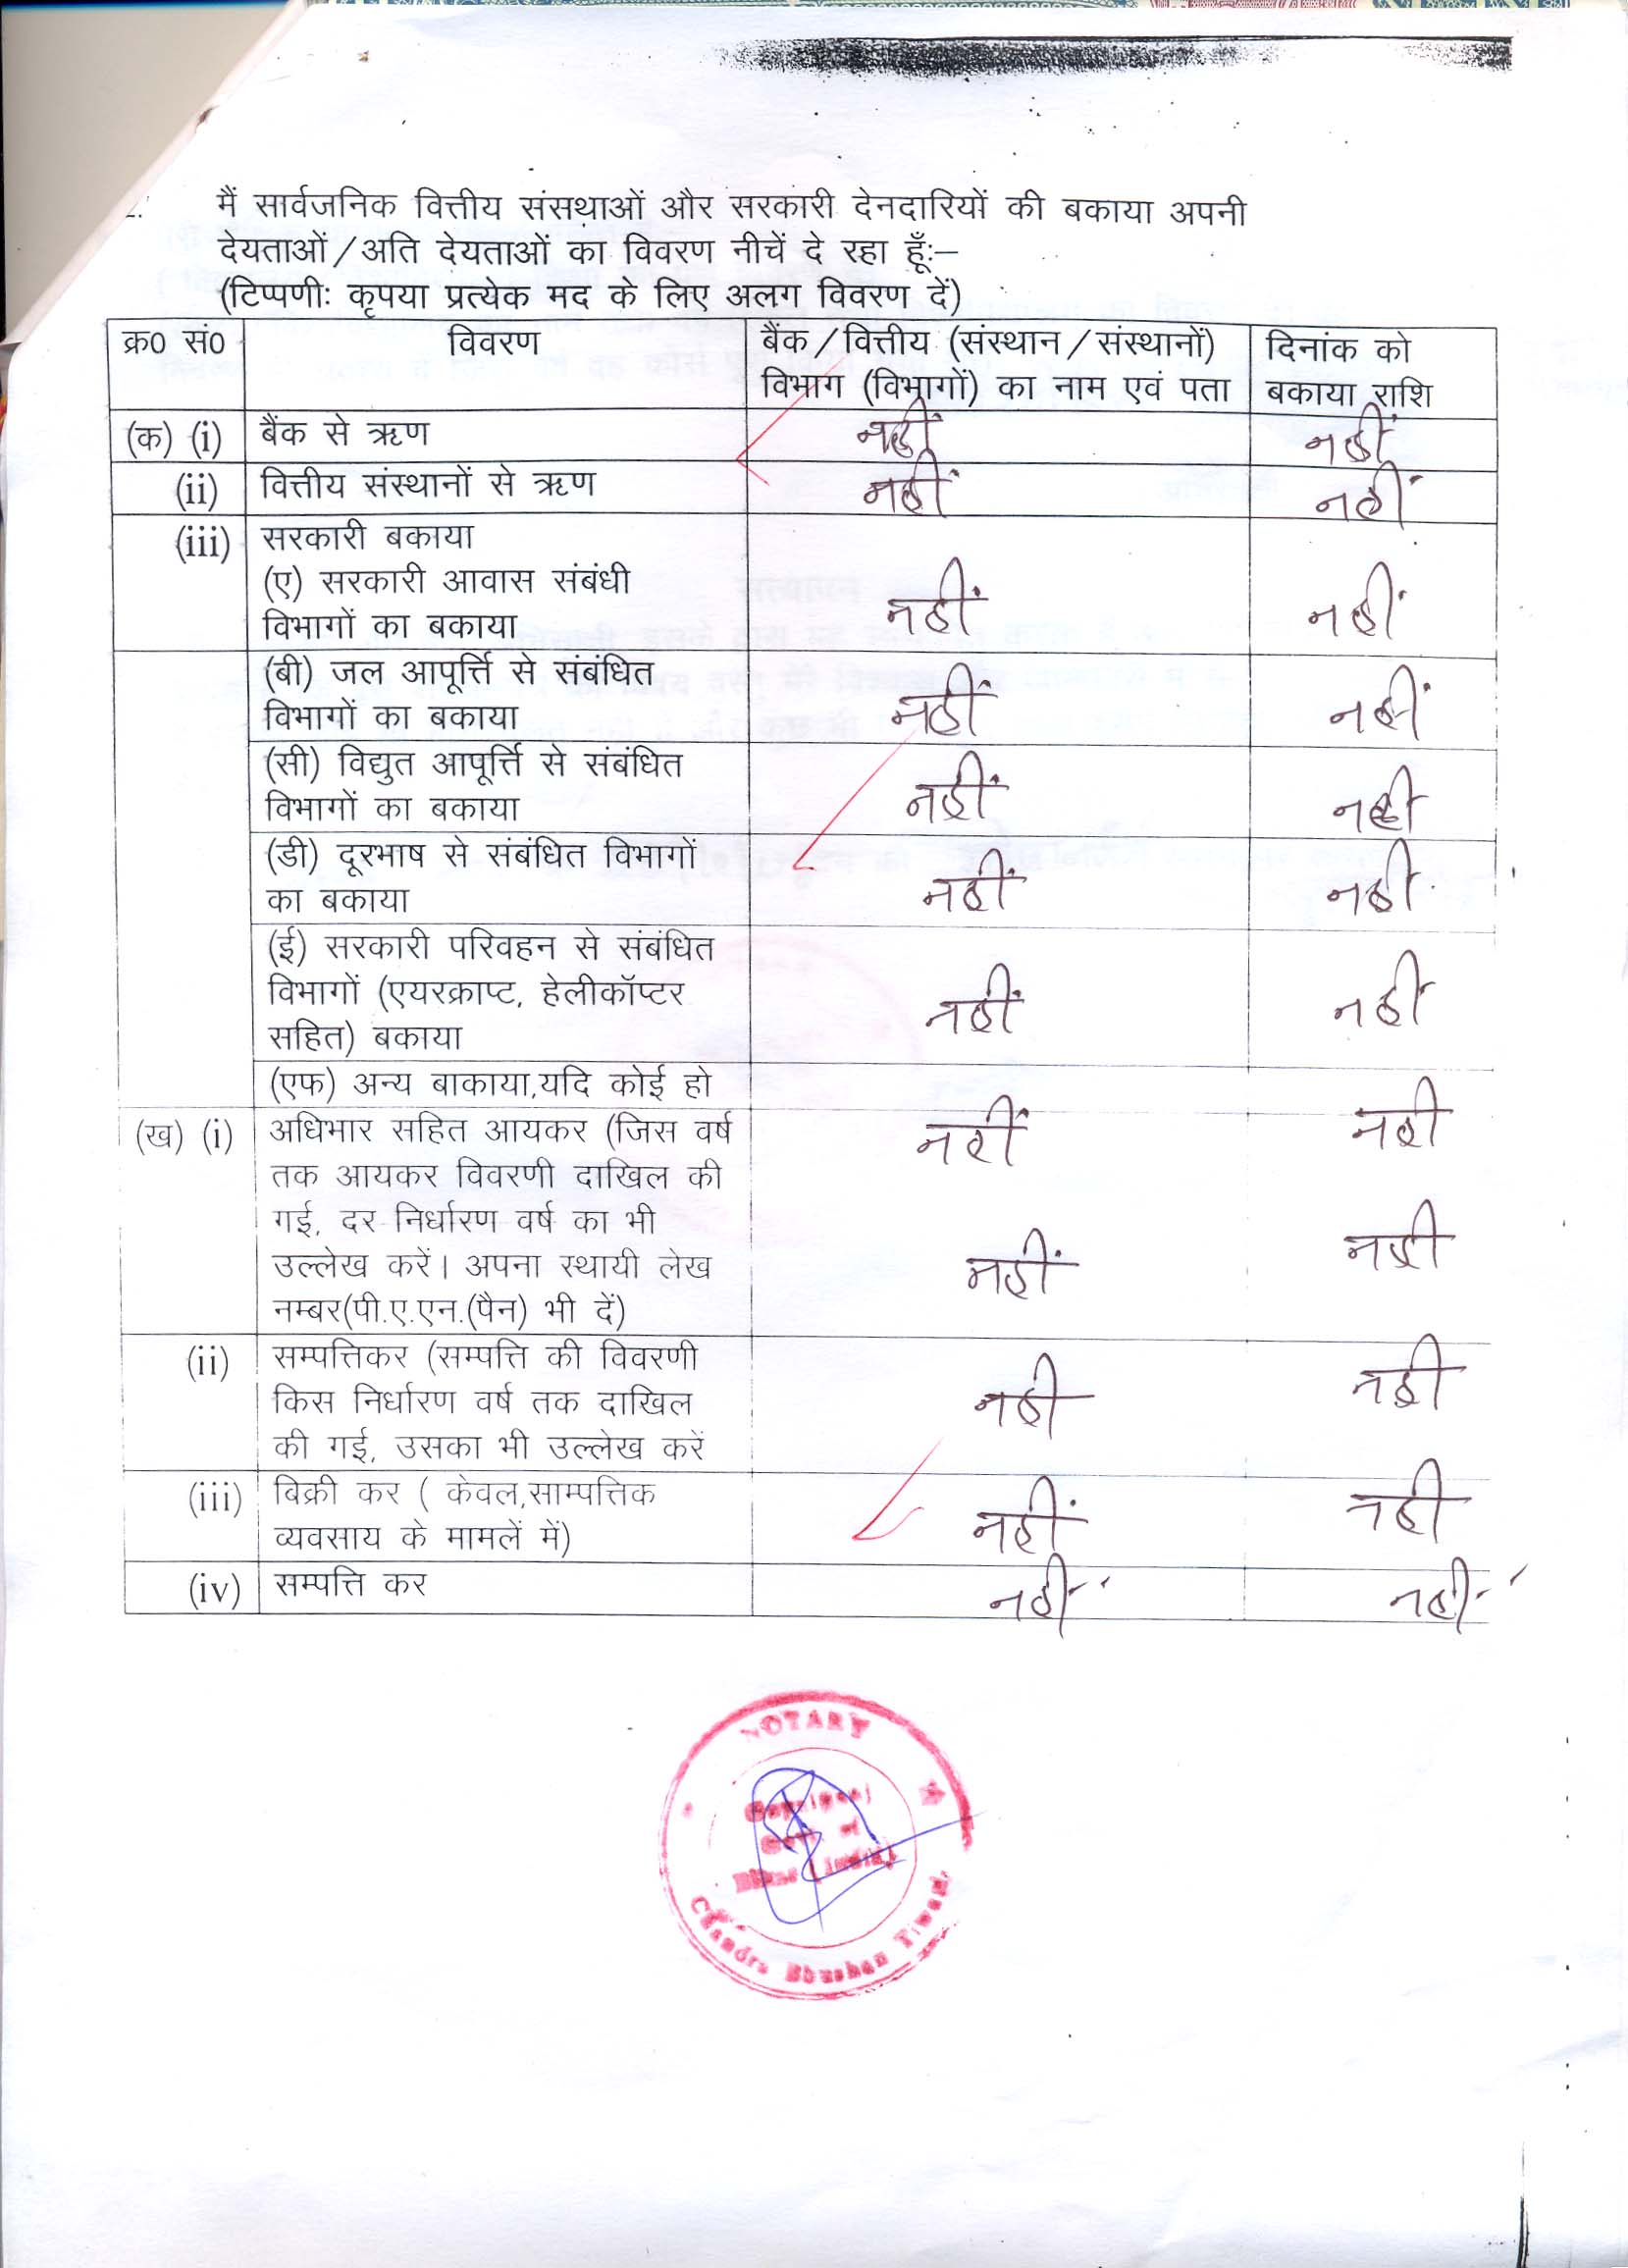 2. मैं सार्वजनिक वित्तीय संसथाओं और सरकारी देनदारियों की बकाया अपनी
देयताओं/अति देयताओं का विवरण नीचें दे रहा हूँ:–
(टिप्पणीः कृपया प्रत्येक मद के लिए अलग विवरण दें)
क्र0 सं0 विवरण बैंक/वित्तीय (संस्थान/संस्थानों) दिनांक को
विभाग (विभागों) का नाम एवं पता बकाया राशि
(क) (i) बैंक से ऋण नहीं नहीं
(ii) वित्तीय संस्थानों से ऋण नहीं नहीं
(iii) सरकारी बकाया
(ए) सरकारी आवास संबंधी
विभागों का बकाया नहीं नहीं
(बी) जल आपूर्त्ति से संबंधित
विभागों का बकाया नहीं नहीं
(सी) विद्युत आपूर्त्ति से संबंधित
विभागों का बकाया नहीं नही
(डी) दूरभाष से संबंधित विभागों
का बकाया नहीं नहीं
(ई) सरकारी परिवहन से संबंधित
विभागों (एयरक्राप्ट, हेलीकॉप्टर नहीं नहीं
सहित) बकाया
(एफ) अन्य बाकाया,यदि कोई हो
(ख) (i) अधिभार सहित आयकर (जिस वर्ष नहीं नही
तक आयकर विवरणी दाखिल की
गई, दर निर्धारण वर्ष का भी
उल्लेख करें। अपना स्थायी लेख नहीं नही
नम्बर(पी.ए.एन.(पैन) भी दें)
(ii) सम्पत्तिकर (सम्पत्ति की विवरणी
किस निर्धारण वर्ष तक दाखिल नही नही
की गई, उसका भी उल्लेख करें
(iii) बिक्री कर ( केवल,साम्पत्तिक
व्यवसाय के मामलें में) नहीं नही
(iv) सम्पत्ति कर नहीं नहीं
NOTARY
Gopalganj
Govt. of
Bihar (India)
Chandra Bhushan Tiwari